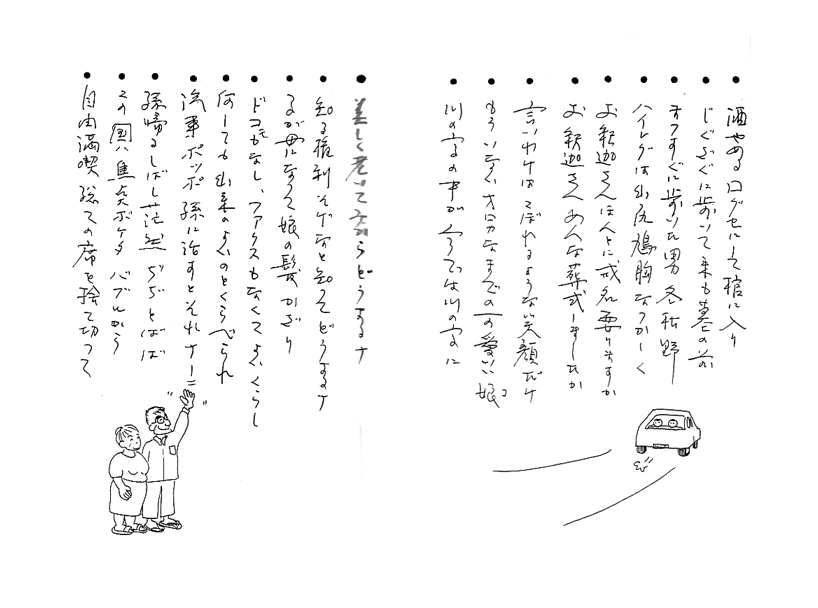 酒やめる口グセにして棺に入り
じぐざぐに歩いて来も墓の前
まっすぐに歩いた男 冬枯野
ハイレグは出尻鳩胸なつかしく
お釈迦さんほんとに戒名要りますか
お釈迦さんあんな葬式しましたか
言いわけはこぼれるような笑顔だけ
もういない オロカなまでの 愛しい娘
川の字の中が 今では川の字に
美しく老いて だからどうするナ
知る権利そんなと知ってどうするナ
るが母になって娘の髪かざり
ドコもなし、ファクスもなくてよいくらし
何しても出来のよいのとくらべられ
汽車ポッポ 孫に治すとそれナーニ
孫帰るしばし茫然 ぢぢとばば
この国は焦点ボケタ バブルから
自由満喫 総ての席を捨て切って